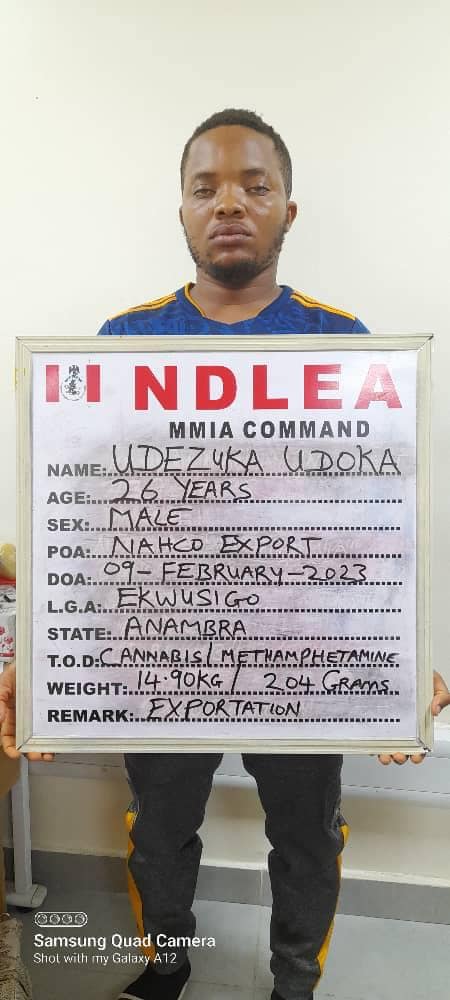 NDLEA
MMIA COMMAND
NAME: UDEZUKA UDOKA
AGE: 26 YEARS
SEX: MALE
POA: NAHCO EXPORT
DOA: 09-FEBRUARY-2023
L.G.A: EKWUSIGO
STATE: ANAMBRA
T.O.D: CANNABIS/METHAMPHETAMINE
WEIGHT: 14.90KG/ 204 GRAMS
REMARK: EXPORTATION
Samsung Quad Camera
Shot with my Galaxy A12